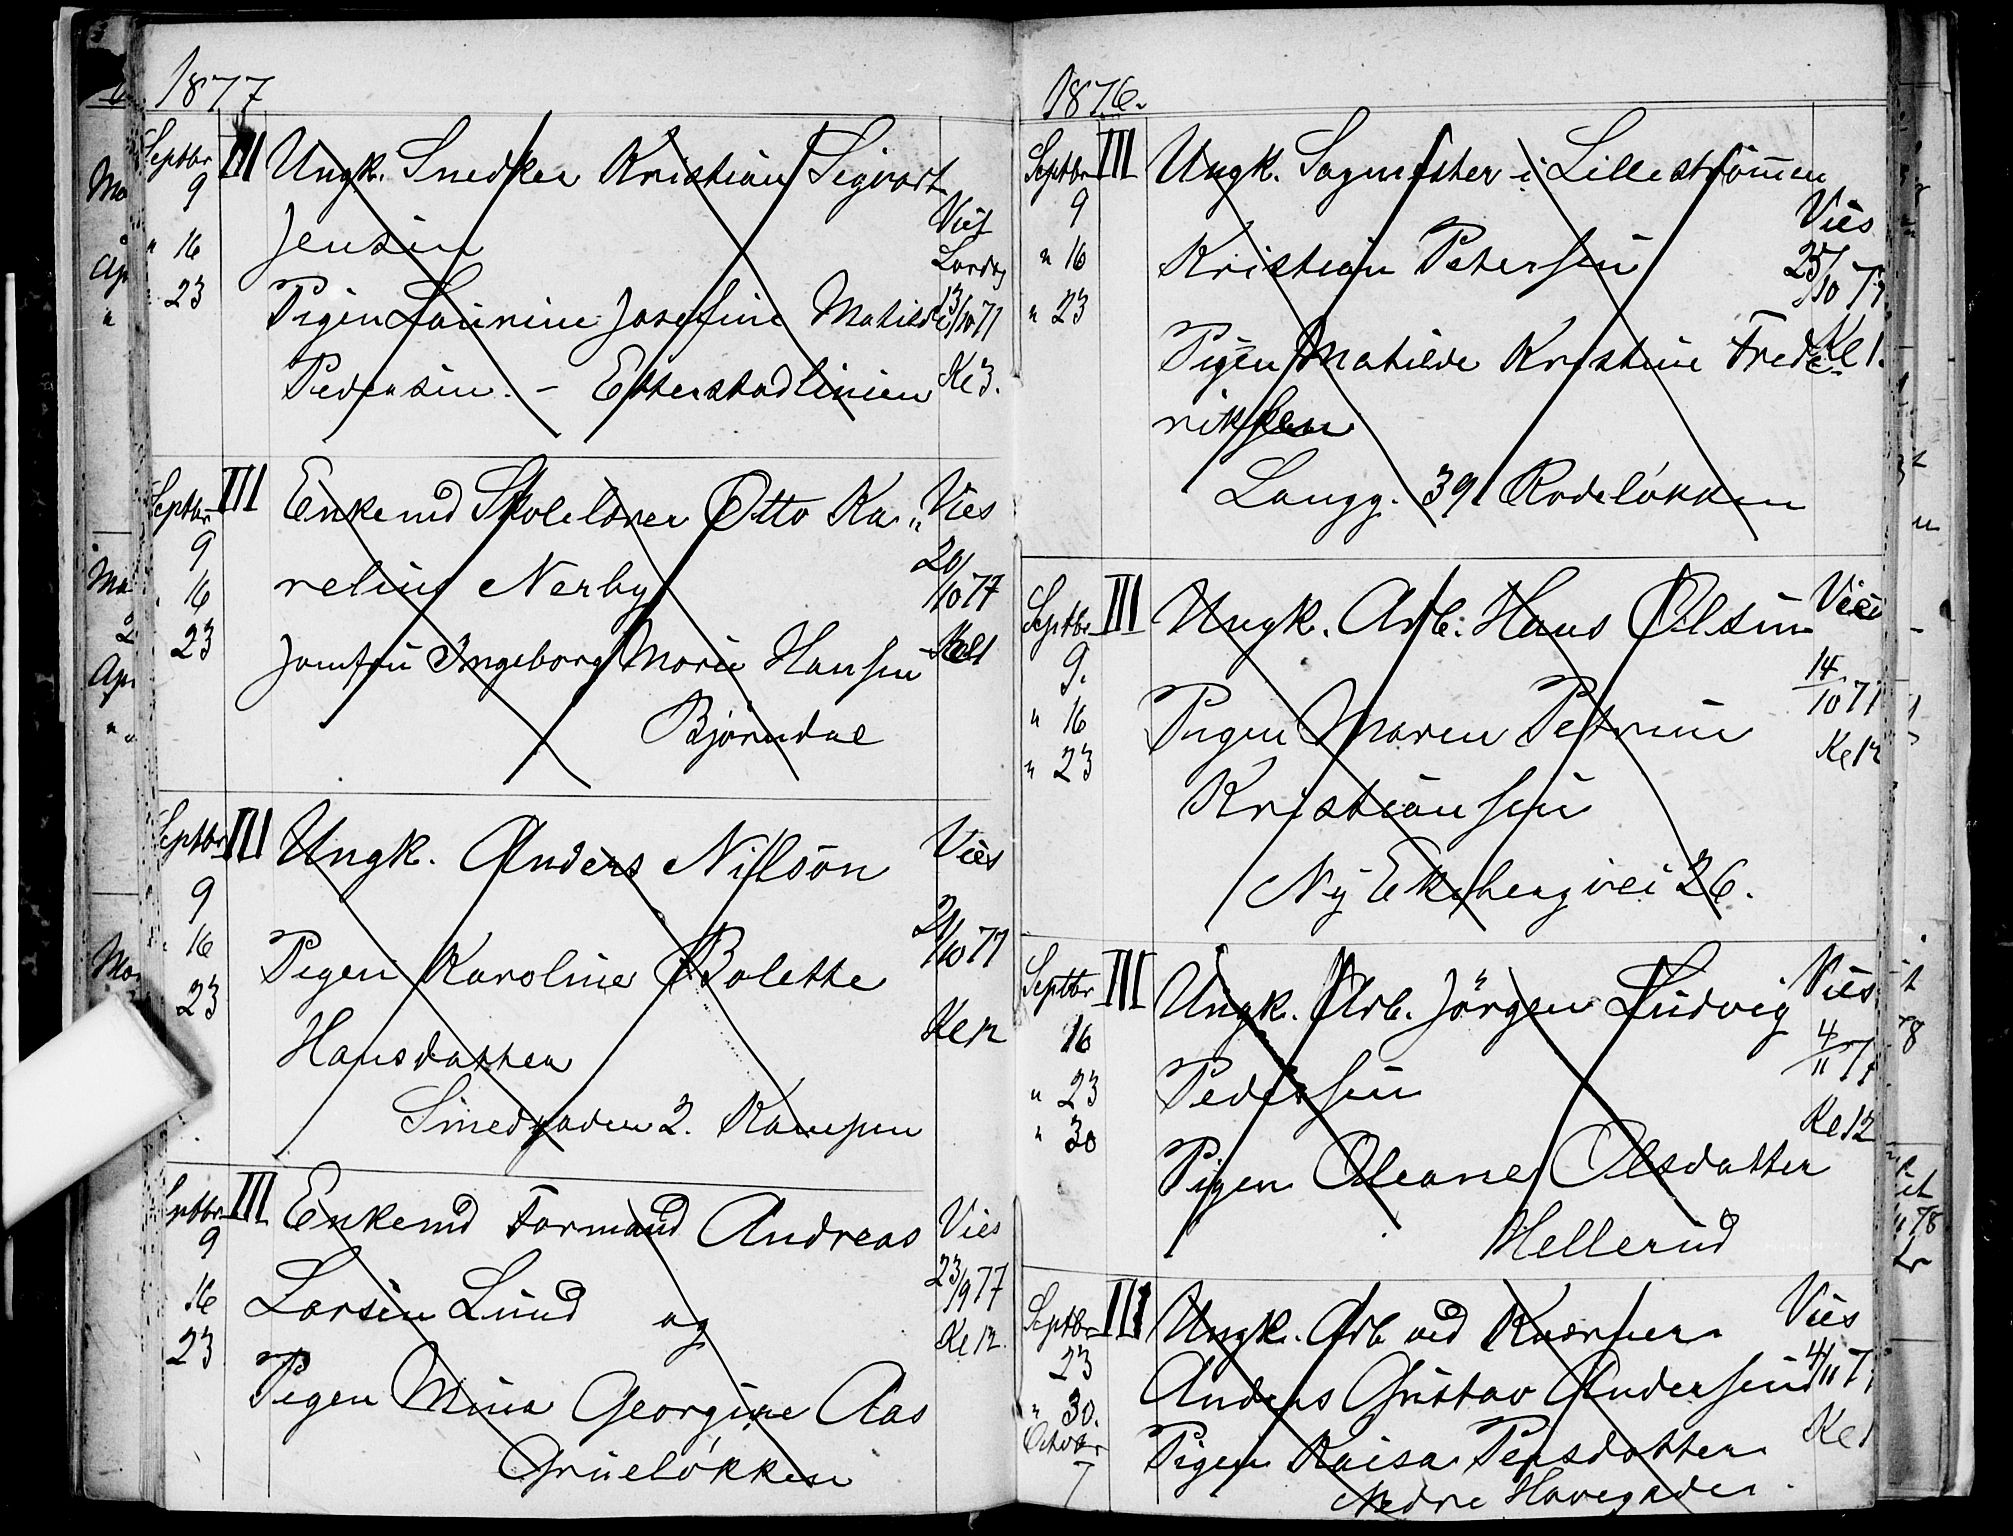 1877
Septbr III Ungk. Snedker Kristian Sigvart
9
Jensen Viet
" 16 Lørdag
" 23 Pigen Laurine Josefine Mathilde 13/10 77
Pedersen. - Etterstadlinien Kl 3.
Septbr III Enkemd Skolelærer Otto Ka- Vies
9 20/10 77
16 relius Nerby
23 Jomfru Ingeborg Marie Hansen Kl 1
Bjørndal
Septbr III Ungk. Anders Nilson Vies
9 21/10 77
16 Pigen Karoline Bolette
23 Hansdatter Kl 12
Smedgaden 2. Kampen
Septbr III Enkemd Formand Andreas Vies
9
16 Larsen Lund og 23/9 77
23 Kl 12.
Pigen Mina Georgine Aas
Grüeløkken
1876.
Septbr III Ungk. Sagmester i Lillestrømmen
9 Vies
" 16 Kristian Petersen 25/10 77
" 23
Pigen Mathilde Kristine Frede- Kl 1.
riksen
Langg. 39 Rodeløkken
Septbr III Ungk. Arb. Hans Olsen Vies
9. 14/10 77
" 16 Pigen Maren Petrine
" 23 Kl 12
Kristiansen
Ny Ekebergvei 26.
Septbr III Ungk. Arb. Jørgen Ludvig Vies
16 4/11 77
" 23 Pedersen
" 30 Kl 12
Pigen Oleane Olsdatter
Hellerud
Septbr III Ungk. Arb ved Kværner Vies
23
Anders Gustav Andersen 4/11 77
" 30.
Octobr Pigen Kaisa Persdatter Kl 1
7 Nedre Havegaden.